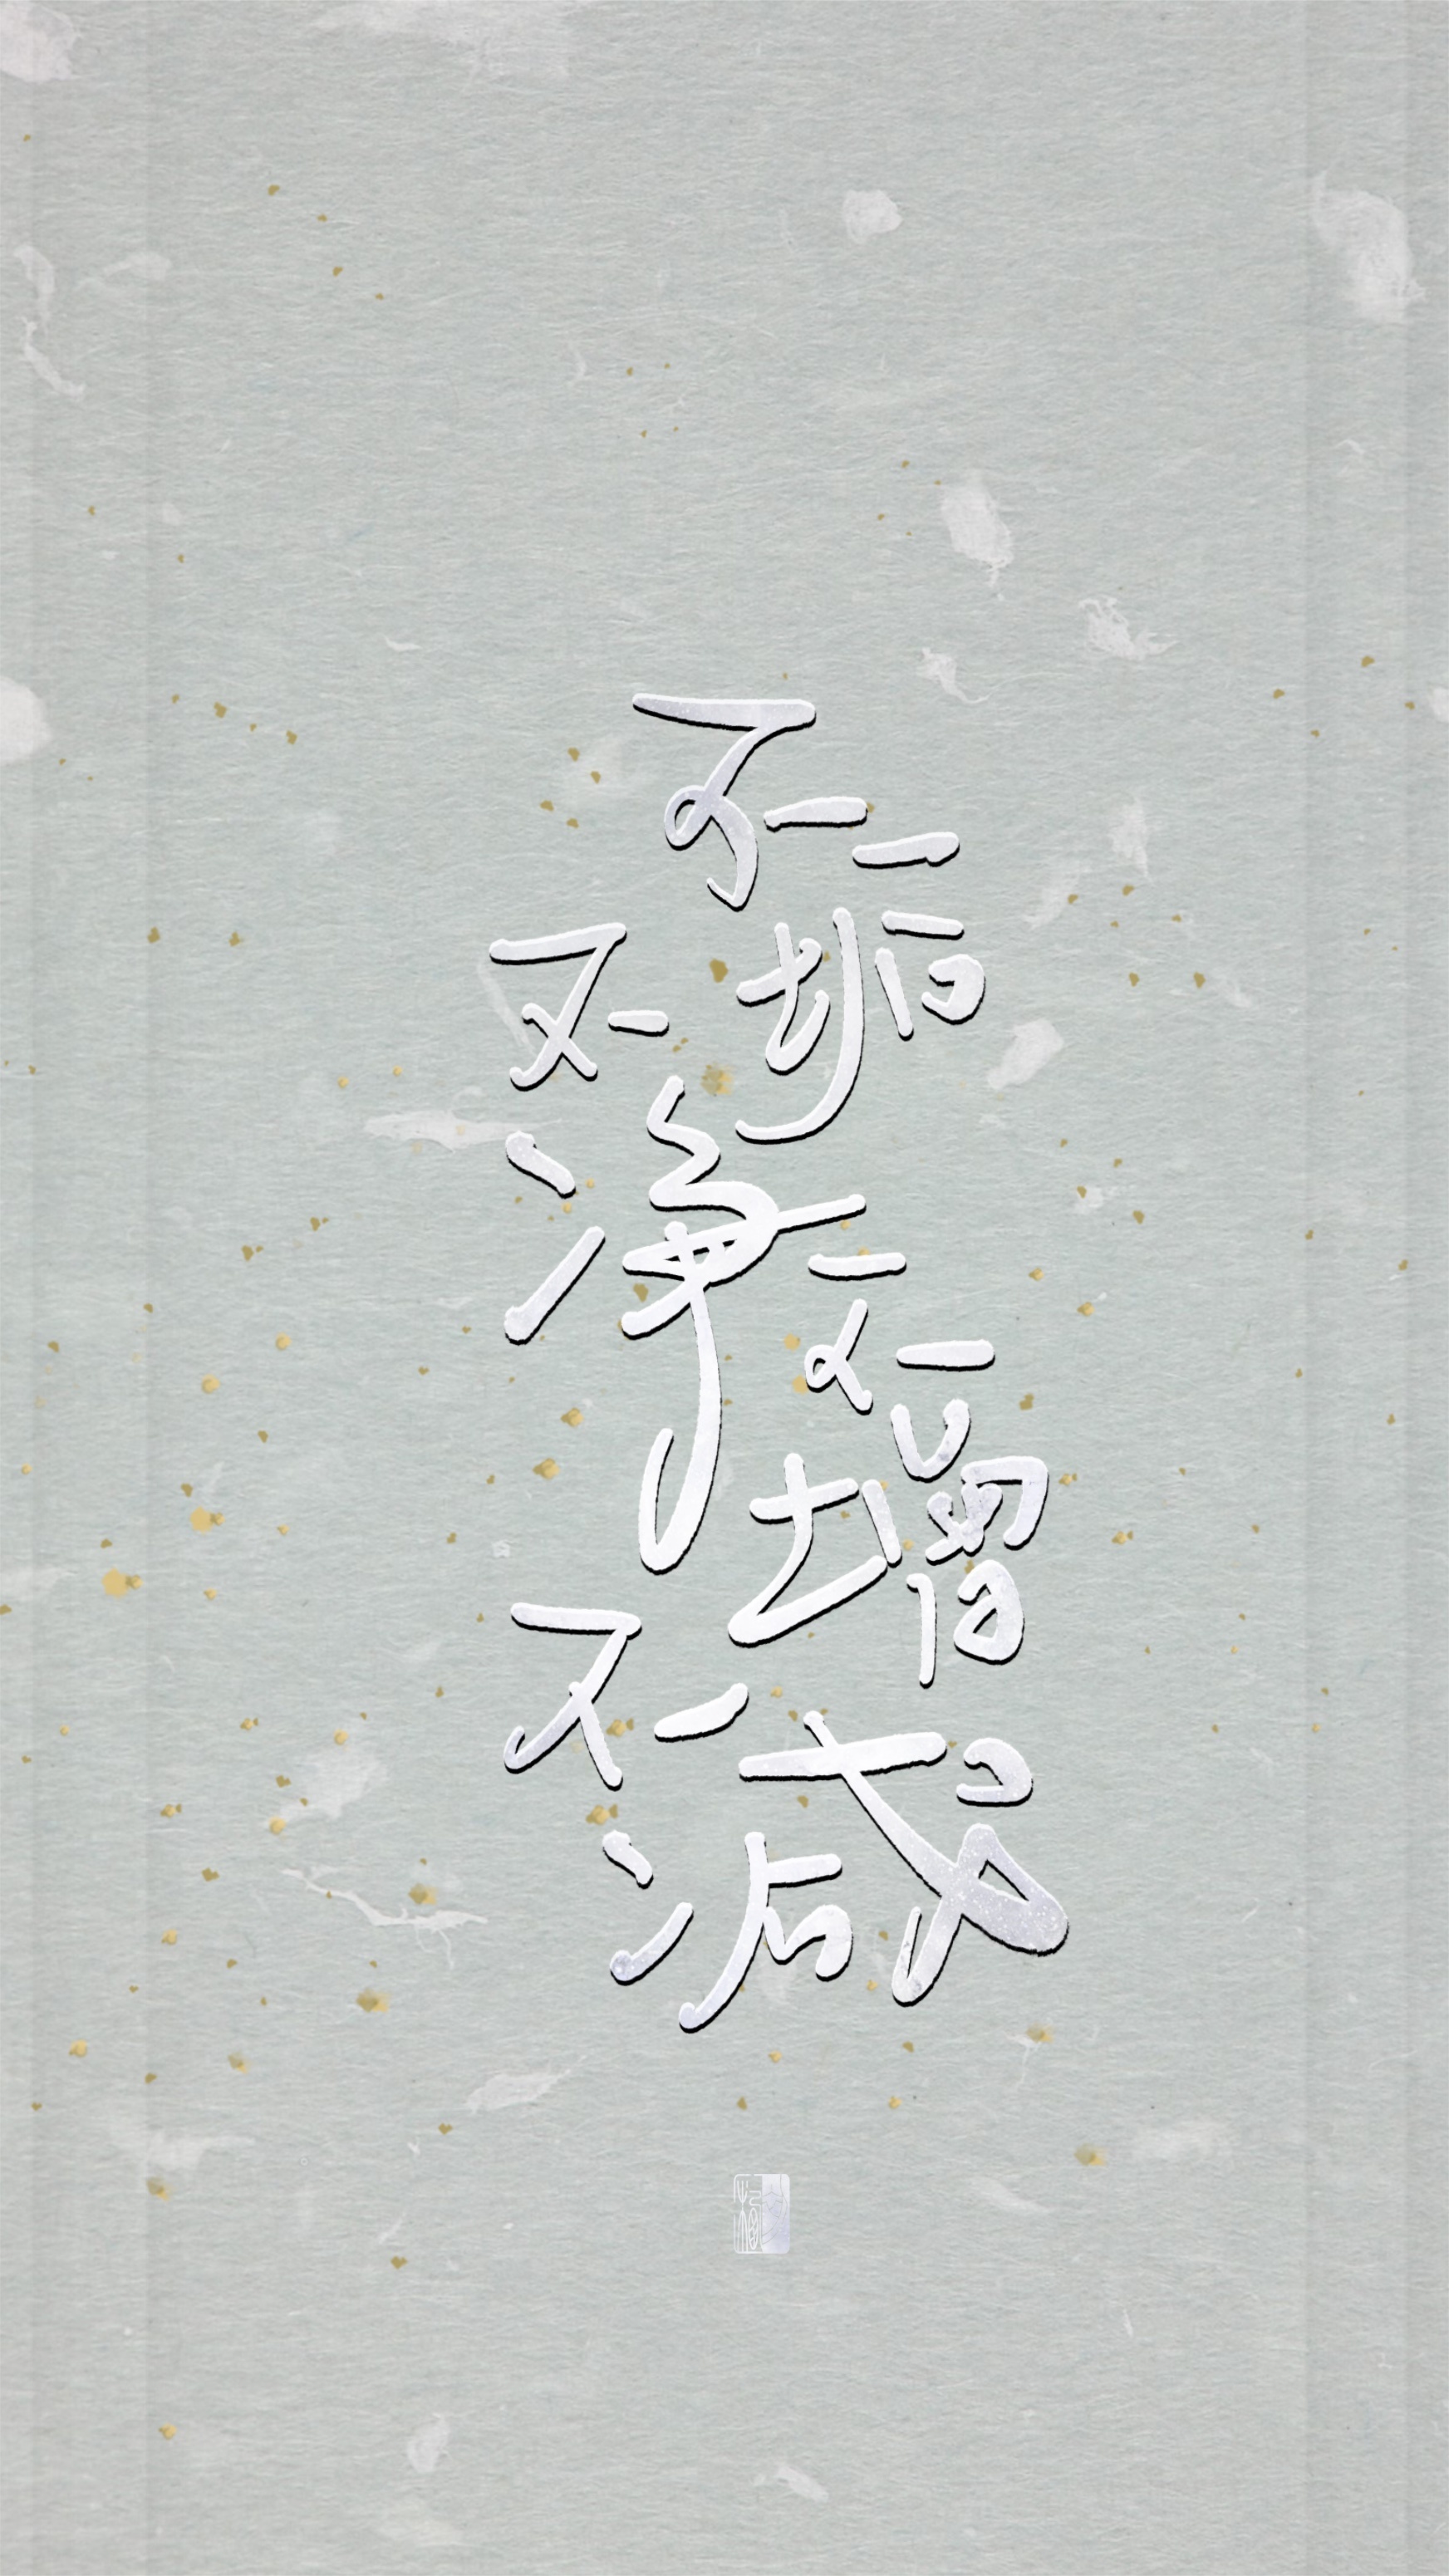 不垢
不净
不增
不减